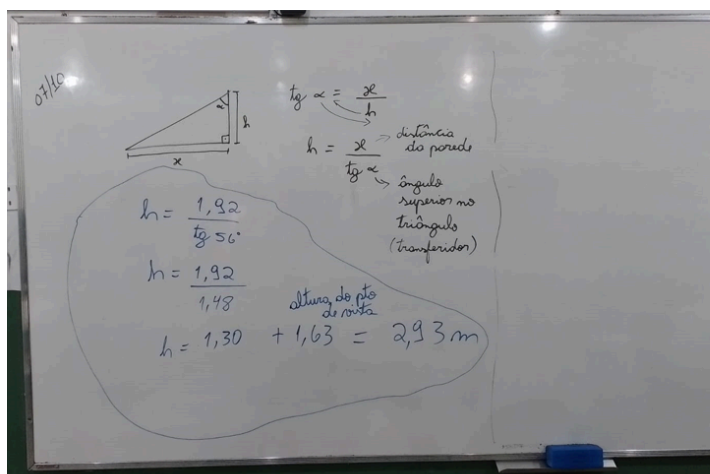 07/10
α
h
x
tg α = x/h
h = x/tg α
distância
da parede
ângulo
superior no
triângulo
(transferidor)
h = 1,92/tg 56°
h = 1,92/1,48
altura do pto
de vista
h = 1,30 + 1,63 = 2,93 m